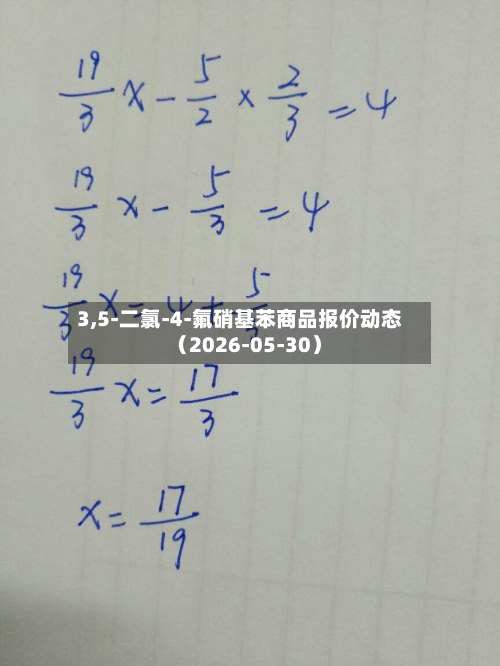 19/3 x - 5/2 × 2/3 = 4
19/3 x - 5/3 = 4
19/3 x = 4 + 5
3,5-二氯-4-氟硝基苯商品报价动态
（2026-05-30）
19/3 x = 17/3
x = 17/19